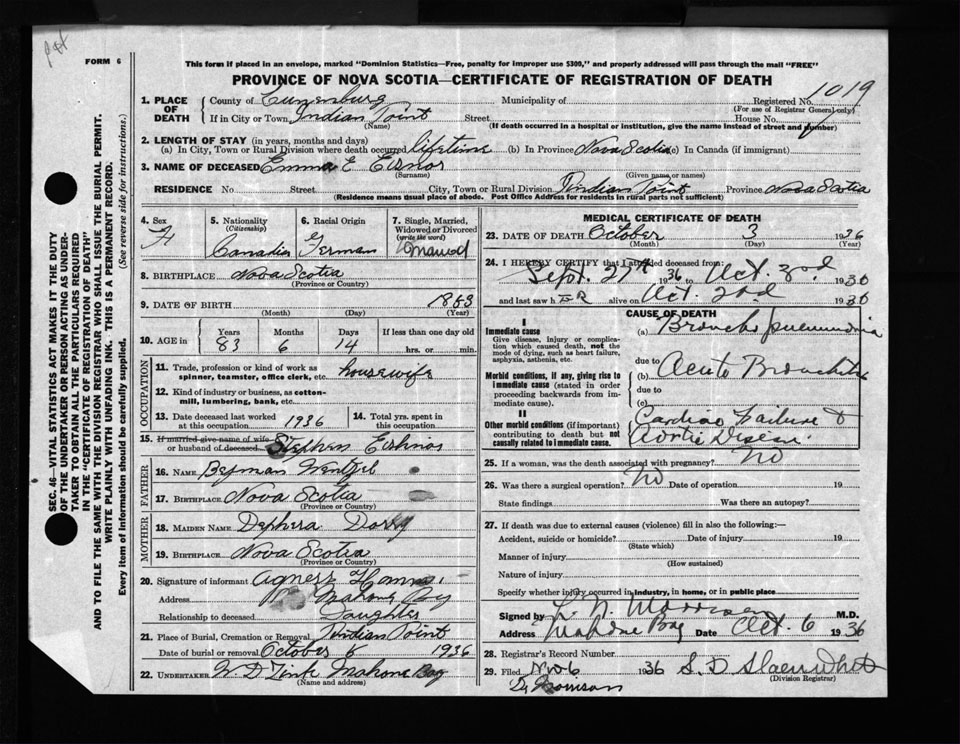 FORM 6
This form if placed in an envelope, marked "Dominion Statistics—Free, penalty for improper use $300", and properly addressed will pass through the mail "FREE"
PROVINCE OF NOVA SCOTIA—CERTIFICATE OF REGISTRATION OF DEATH
SEC. 46—VITAL STATISTICS ACT MAKES IT THE DUTY
OF THE UNDERTAKER OR PERSON ACTING AS UNDER-
TAKER TO OBTAIN ALL THE PARTICULARS REQUIRED
IN THE "CERTIFICATE OF REGISTRATION OF DEATH"
AND TO FILE THE SAME WITH THE DIVISION REGISTRAR WHO SHALL ISSUE THE BURIAL PERMIT.
WRITE PLAINLY WITH UNFADING INK. THIS IS A PERMANENT RECORD.
Every item of information should be carefully supplied. (See reverse side for instructions.)
1. PLACE OF DEATH County of Lunenburg Municipality of Registered No. 1019
(For use of Registrar General only)
If in City or Town Indian Point Street House No.
(Name) (If death occurred in a hospital or institution, give the name instead of street and number)
2. LENGTH OF STAY (in years, months and days)
(a) In City, Town or Rural Division where death occurred lifetime (b) In Province Nova Scotia (c) In Canada (if immigrant)
3. NAME OF DECEASED Emma E Eisnor
(Surname) (Given name or names)
RESIDENCE No Street City, Town or Rural Division Indian Point Province Nova Scotia
(Residence means usual place of abode. Post Office Address for residents in rural parts not sufficient)
4. Sex F
5. Nationality (Citizenship) Canadian
6. Racial Origin German
7. Single, Married, Widowed or Divorced (write the word) Married
8. BIRTHPLACE Nova Scotia
(Province or Country)
9. DATE OF BIRTH 1853
(Month) (Day) (Year)
10. AGE in Years 83 Months 6 Days 14 If less than one day old hrs. or min.
OCCUPATION
11. Trade, profession or kind of work as spinner, teamster, office clerk, etc. housewife
12. Kind of industry or business, as cotton-mill, lumbering, bank, etc.
13. Date deceased last worked at this occupation 1936
14. Total yrs. spent in this occupation
15. If married give name of wife or husband of deceased Stephen Eisnor
FATHER
16. NAME Wentzel
17. BIRTHPLACE Nova Scotia
(Province or Country)
MOTHER
18. MAIDEN NAME
19. BIRTHPLACE Nova Scotia
(Province or Country)
20. Signature of informant Agness
Address Mahone Bay
Relationship to deceased Daughter
21. Place of Burial, Cremation or Removal Indian Point
Date of burial or removal October 6 1936
22. UNDERTAKER W D Zink Mahone Bay
(Name and address)
MEDICAL CERTIFICATE OF DEATH
23. DATE OF DEATH October 3 1936
(Month) (Day) (Year)
24. I HEREBY CERTIFY that I attended deceased from:
Sept. 27th 1936 to Oct. 3rd 1936
and last saw h ER alive on Oct. 2nd 1936
CAUSE OF DEATH
I
Immediate cause
Give disease, injury or complication which caused death, not the mode of dying, such as heart failure, asphyxia, asthenia, etc.
(a) Broncho pneumonia
due to
Morbid conditions, if any, giving rise to immediate cause (stated in order proceeding backwards from immediate cause).
(b) Acute Bronchitis
due to
(c)
II
Other morbid conditions (if important) contributing to death but not causally related to immediate cause.
Cardiac Failure &
Aortic Disease.
25. If a woman, was the death associated with pregnancy? No
26. Was there a surgical operation? No Date of operation 19
State findings Was there an autopsy?
27. If death was due to external causes (violence) fill in also the following:—
Accident, suicide or homicide? Date of injury 19
(State which)
Manner of injury
(How sustained)
Nature of injury
Specify whether injury occurred in industry, in home, or in public place
Signed by M.D.
Address Mahone Bay Date Oct. 6 1936
28. Registrar's Record Number
29. Filed Nov 6 1936
(Division Registrar)